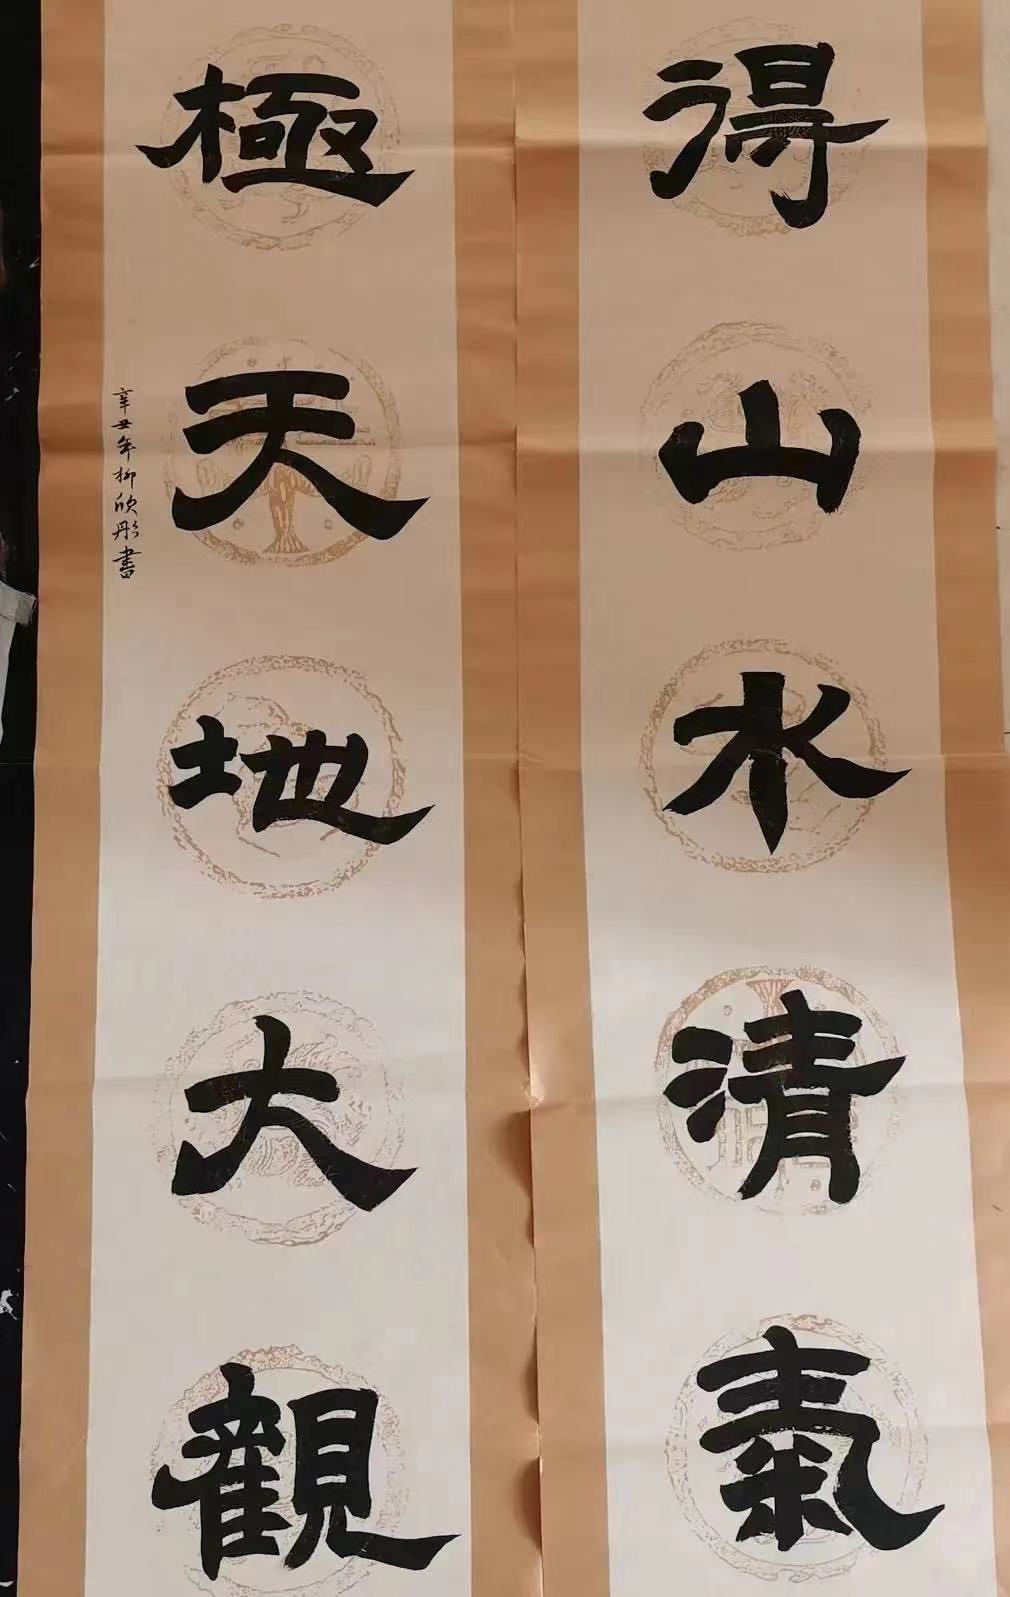 得山水清氣
極天地大觀
辛丑年柳欣彤書